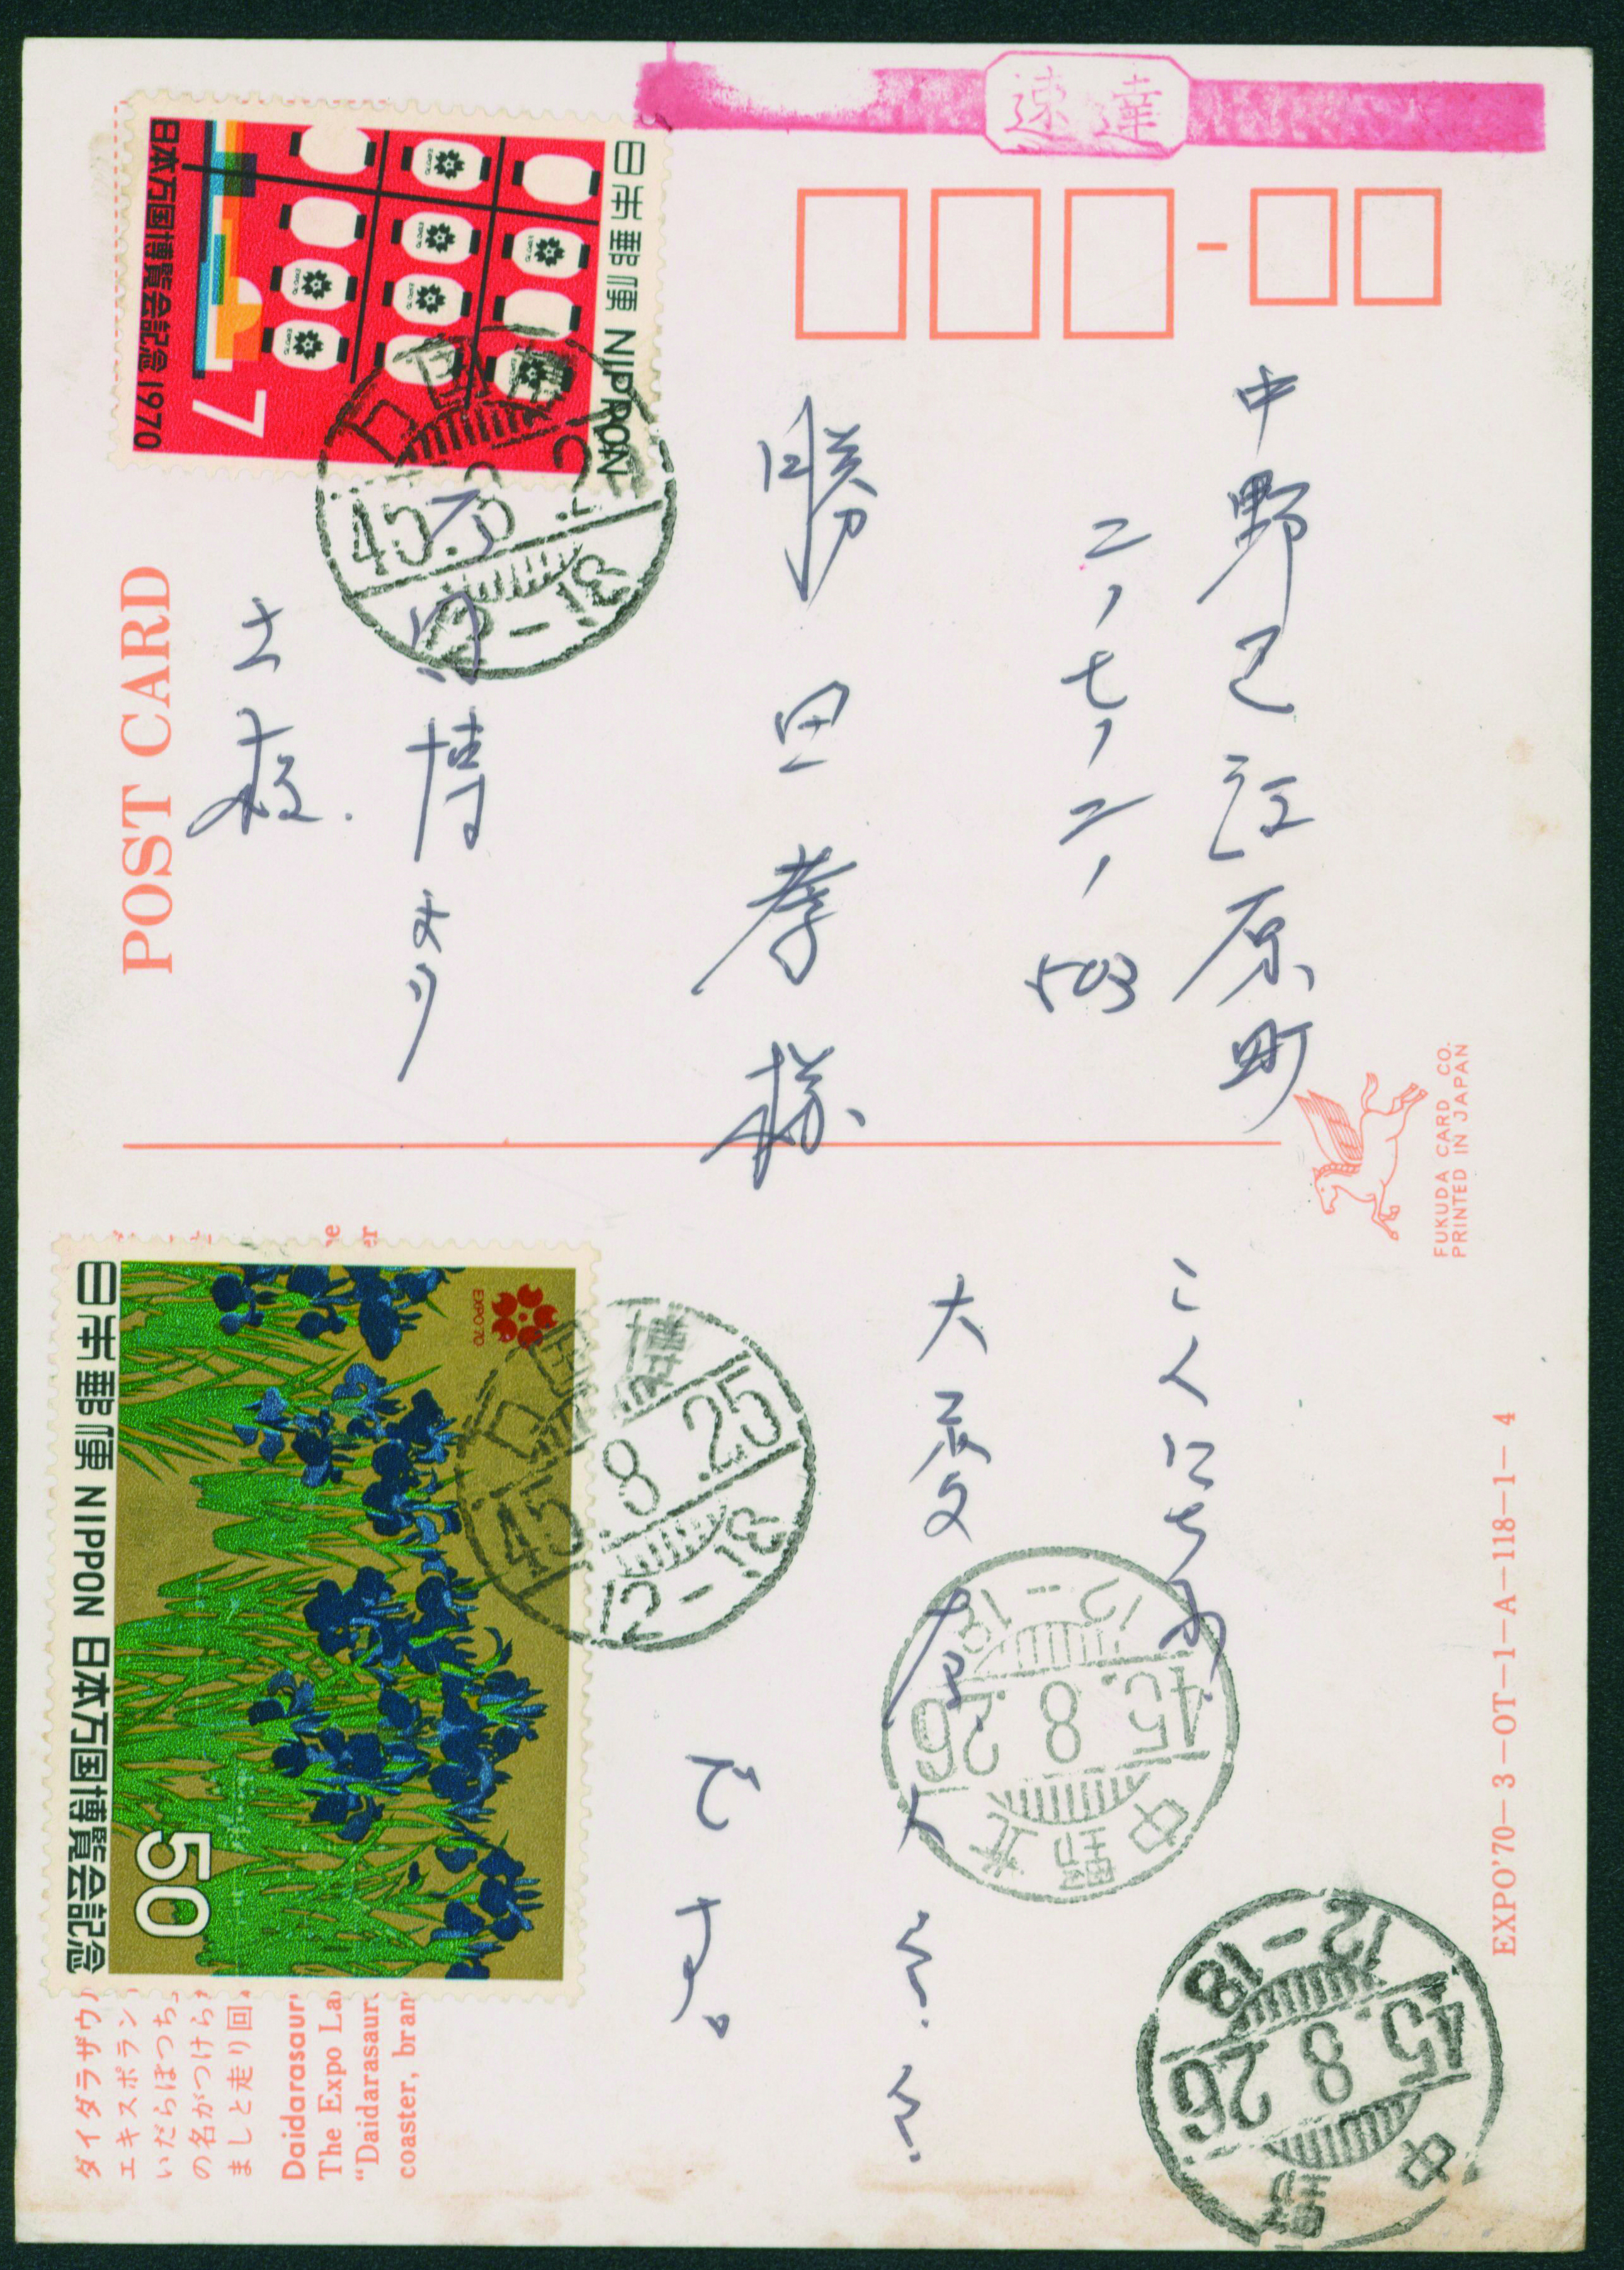 速達
日本郵便 NIPPON
日本万国博覧会記念 1970
7
中野区江原町
二ノ七ノ二ノ
503
勝田孝様
万国博ヨリ
POST CARD
45.8.25
12-18
FUKUDA CARD CO.
PRINTED IN JAPAN
こんにちわ
大変な人
です。
日本郵便 NIPPON 日本万国博覧会記念
50
EXPO'70
万国博
45.8.25
12-18
中野北
45.8.26
12-18
中野
45.8.26
12-18
EXPO'70-3-OT-1-A-118-1-4
ダイダラザウル
エキスポラン
いだらぼっち
の名がつけら
ましと走り回
Daidarasaur
The Expo La
"Daidarasaur
coaster, bran